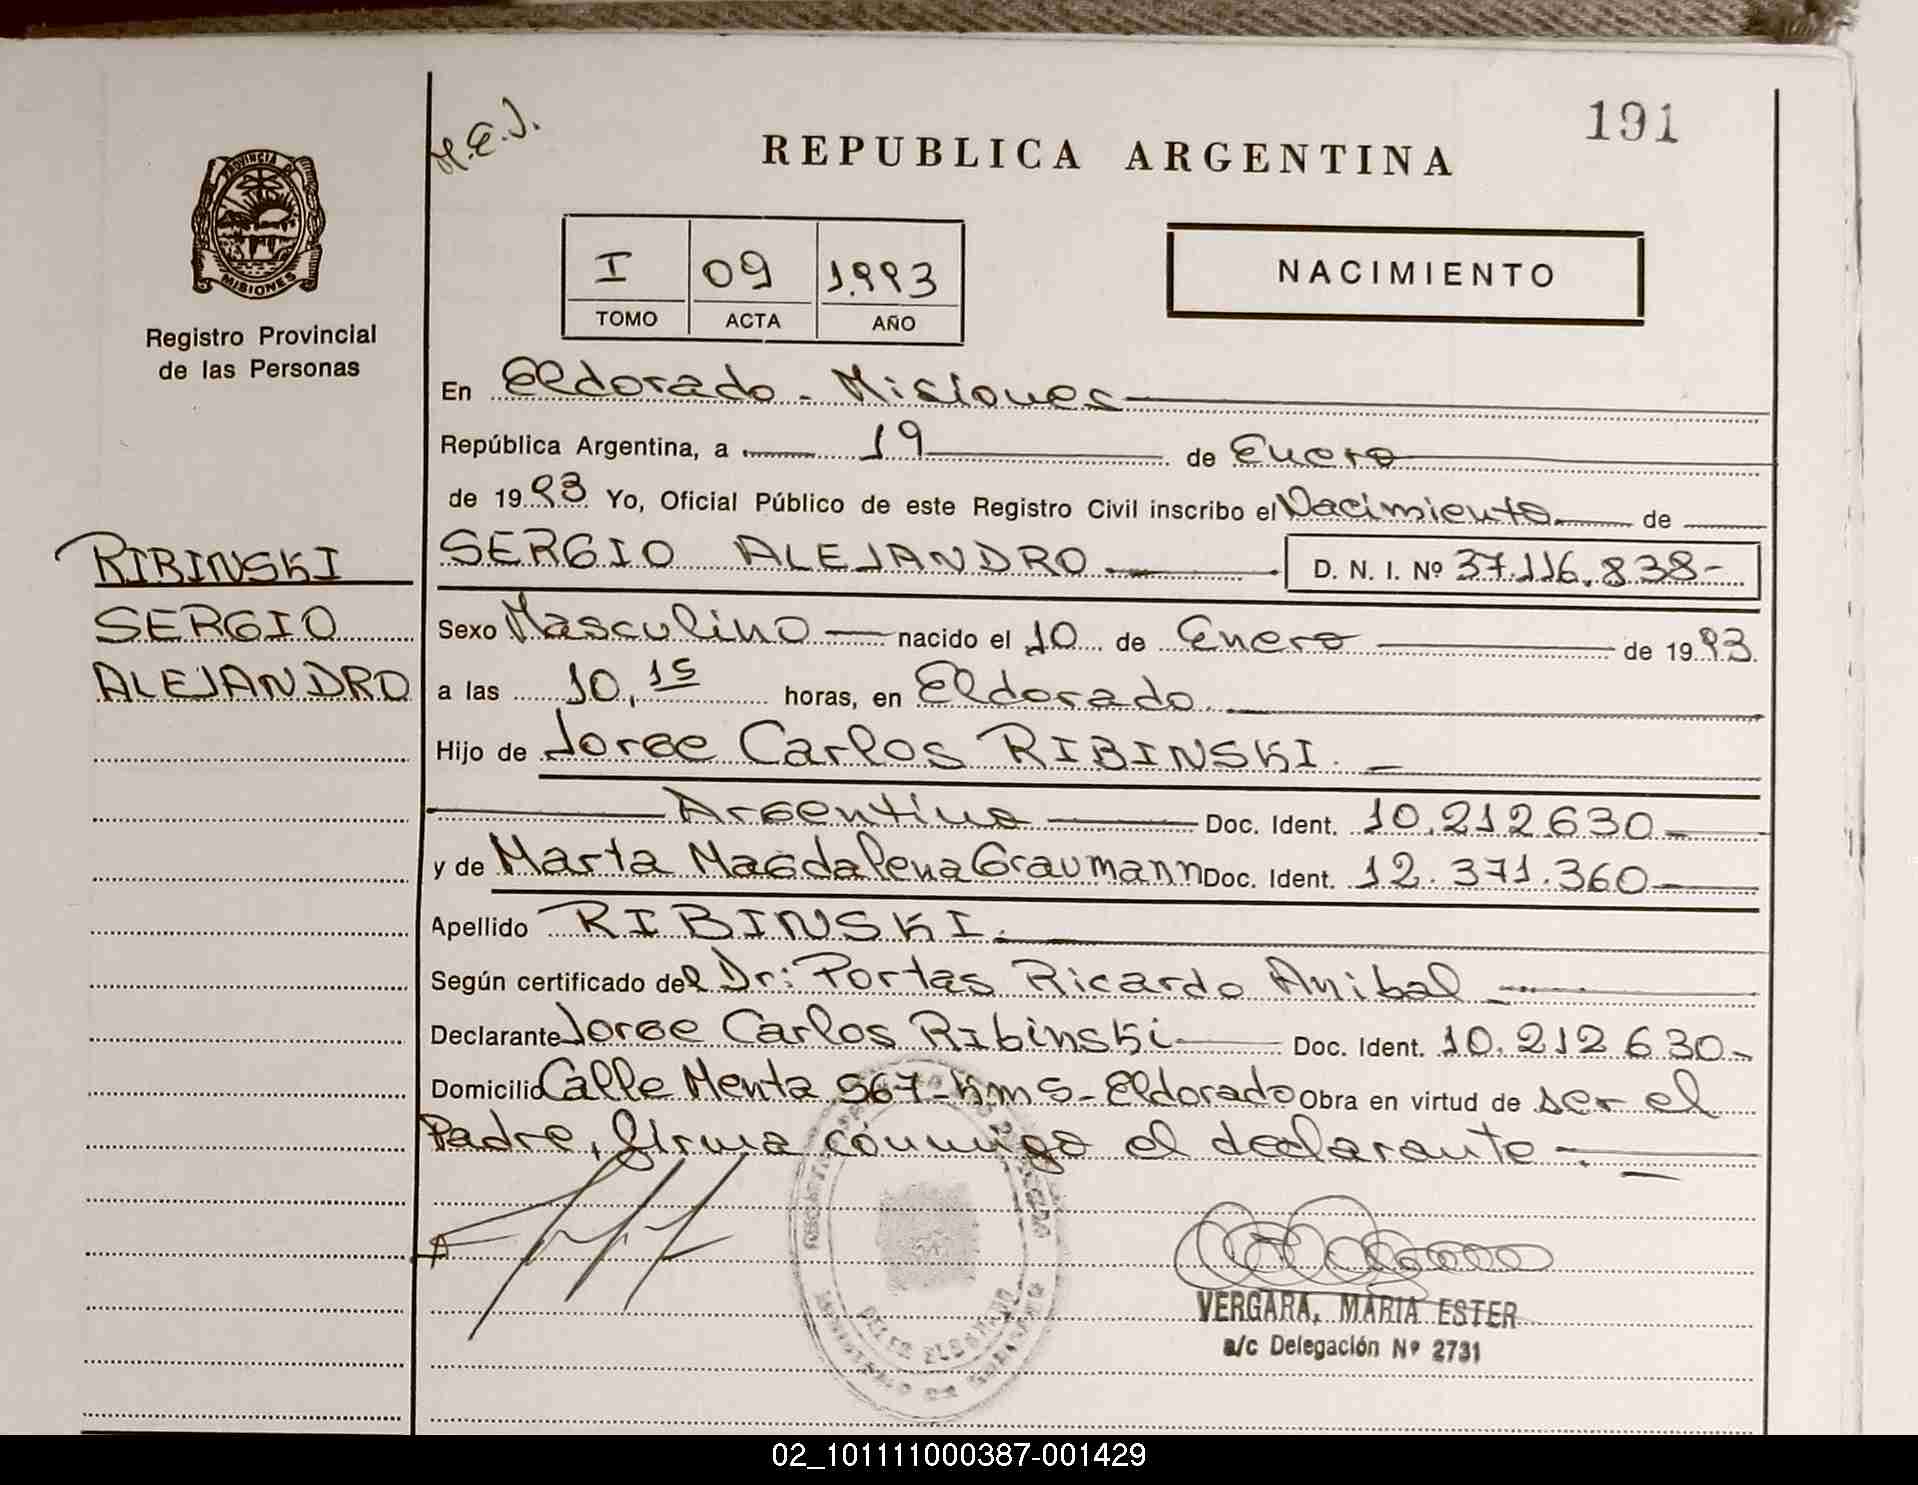 191
M.E.J.
REPUBLICA ARGENTINA
PROVINCIA DE
MISIONES
Registro Provincial
de las Personas
I 09 1.993
TOMO ACTA AÑO
NACIMIENTO
En Eldorado - Misiones
República Argentina, a 19 de Enero
de 1993 Yo, Oficial Público de este Registro Civil inscribo el Nacimiento de
SERGIO ALEJANDRO D. N. I. Nº 37.116.838-
RIBINSKI
SERGIO
ALEJANDRO
Sexo Masculino nacido el 10 de Enero de 1993
a las 10,15 horas, en Eldorado
Hijo de Jorge Carlos RIBINSKI.
Argentino Doc. Ident. 10.212630
y de Marta Magdalena Graumann Doc. Ident. 12.371.360
Apellido RIBINSKI.
Según certificado del Dr: Portas Ricardo Anibal
Declarante Jorge Carlos Ribinski Doc. Ident. 10.212630-
Domicilio Calle Menta 567-km 5-Eldorado Obra en virtud de ser el
Padre, firma conmigo el declarante
VERGARA, MARIA ESTER
a/c Delegación Nº 2731
02_101111000387-001429